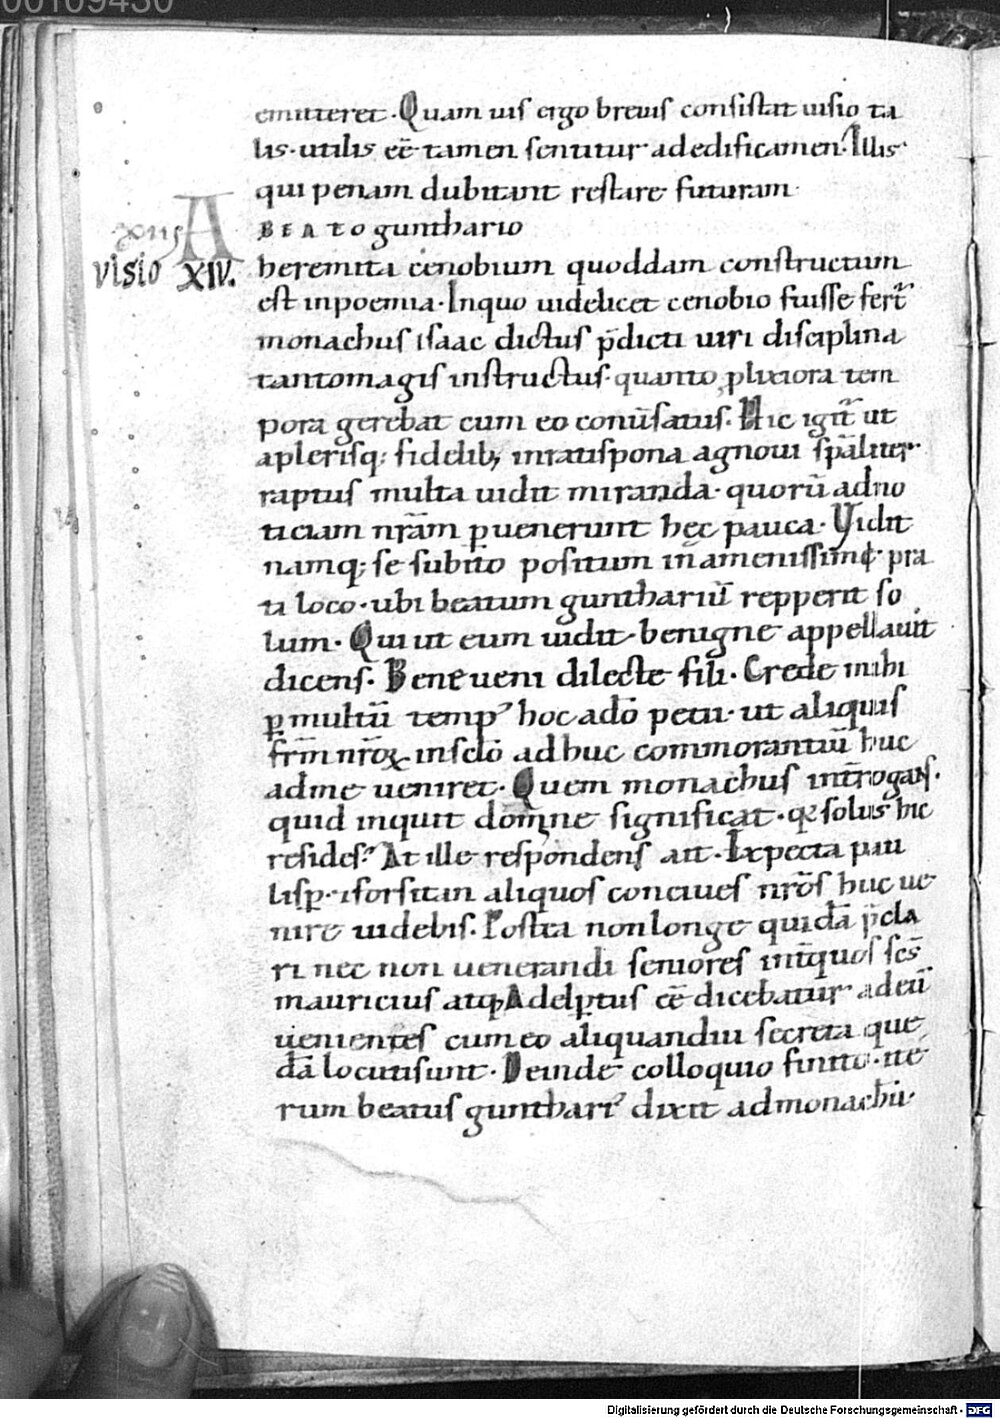 00109430
emitteret. Quam uis ergo breuis consistat uisio ta
lis. utilis eē tamen sentitur ad edificamen. Illis
qui penam dubitant restare futuram.
A BEATO gunthario
visio XIV. heremita cenobium quoddam constructum
est in poemia. In quo uidelicet cenobio fuisse fert̄
monachus isaac dictus p̄dicti uiri disciplina
tanto magis instructus. quanto plixiora tem
pora gerebat cum eo conūsatus. Hic igit̄ ut
a plerisq; fidelib; in ratispona agnoui sp̄aliter
raptus multa uidit miranda. quorū ad no
ticiam nr̄am ꝑuenerunt hęc pauca. Vidit
namq; se subito positum in amenissimę pra
ti loco. ubi beatum gunthariū repperit so
lum. Qui ut eum uidit. benigne appellauit
dicens. Bene ueni dilecte fili. Crede mihi
ꝑ multū temp' hoc a dō petii. ut aliquis
frm̄ nr̄oꝝ in sclō adhuc commorantiū huc
ad me ueniret. Quem monachus int̄rogans.
quid inquit domne significat. qđ solus hic
resides? At ille respondens ait. Expecta pau
lisꝑ. forsitan aliquos conciues nr̄os huc ue
nire uidebis. Postea non longe quidā p̄cla
ri nec non uenerandi seniores int̄ quos scs̄
mauricius atq; Adelptus eē dicebatur ad eū
uenientes cum eo aliquandiu secreta que
dā locuti sunt. Deinde colloquio finito. ite
rum beatus gunthari' dixit ad monachū.
Digitalisierung gefördert durch die Deutsche Forschungsgemeinschaft - DFG